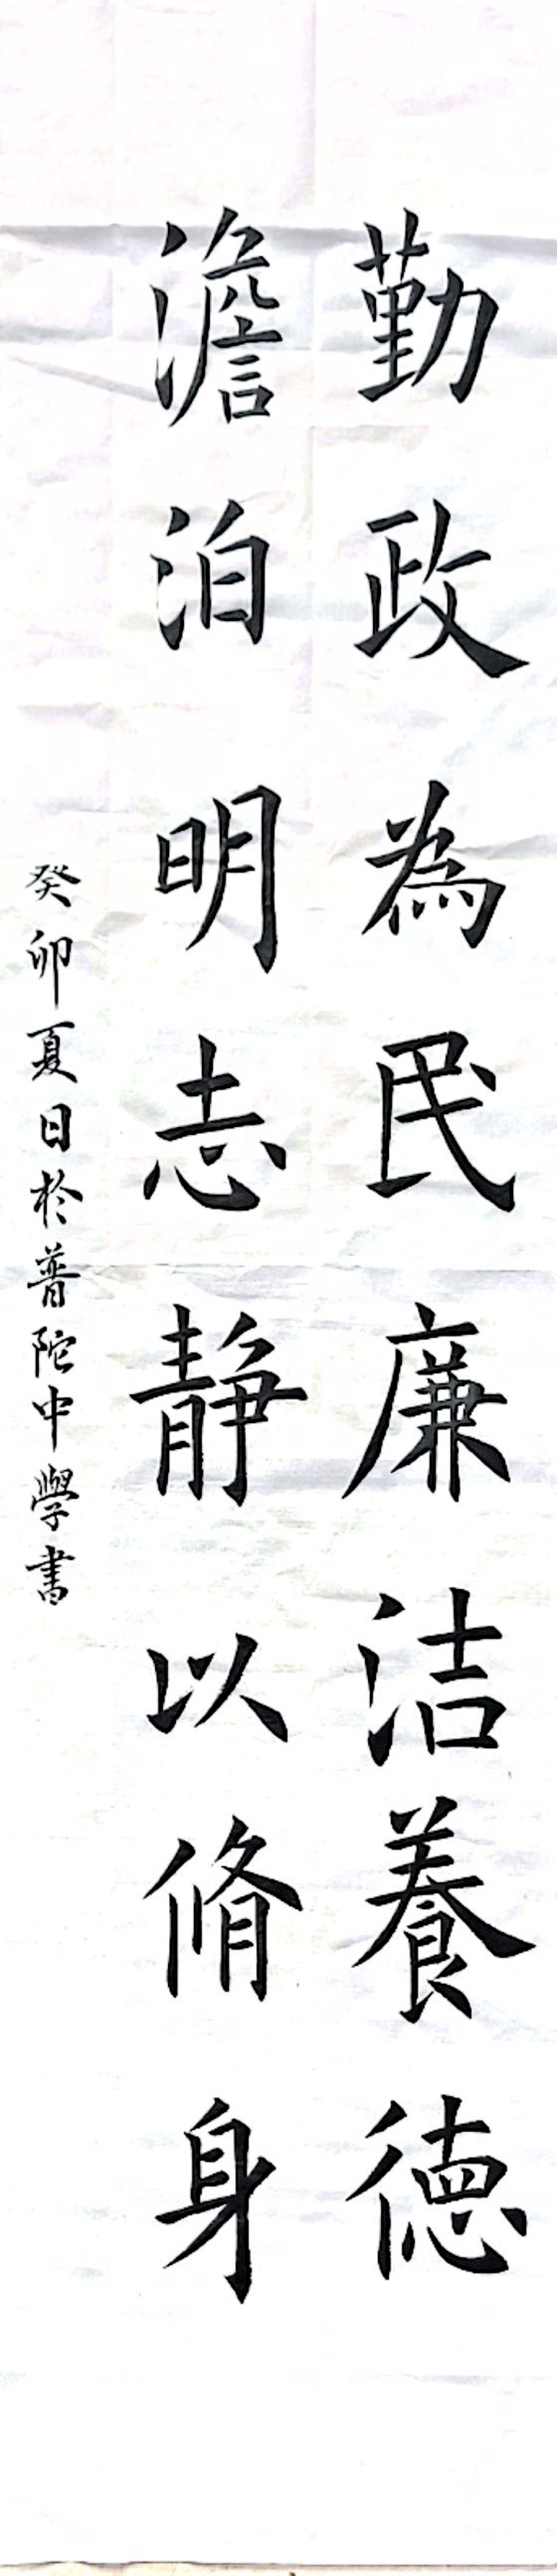 勤政為民廉洁養德
澹泊明志靜以脩身
癸卯夏日於普陀中學書